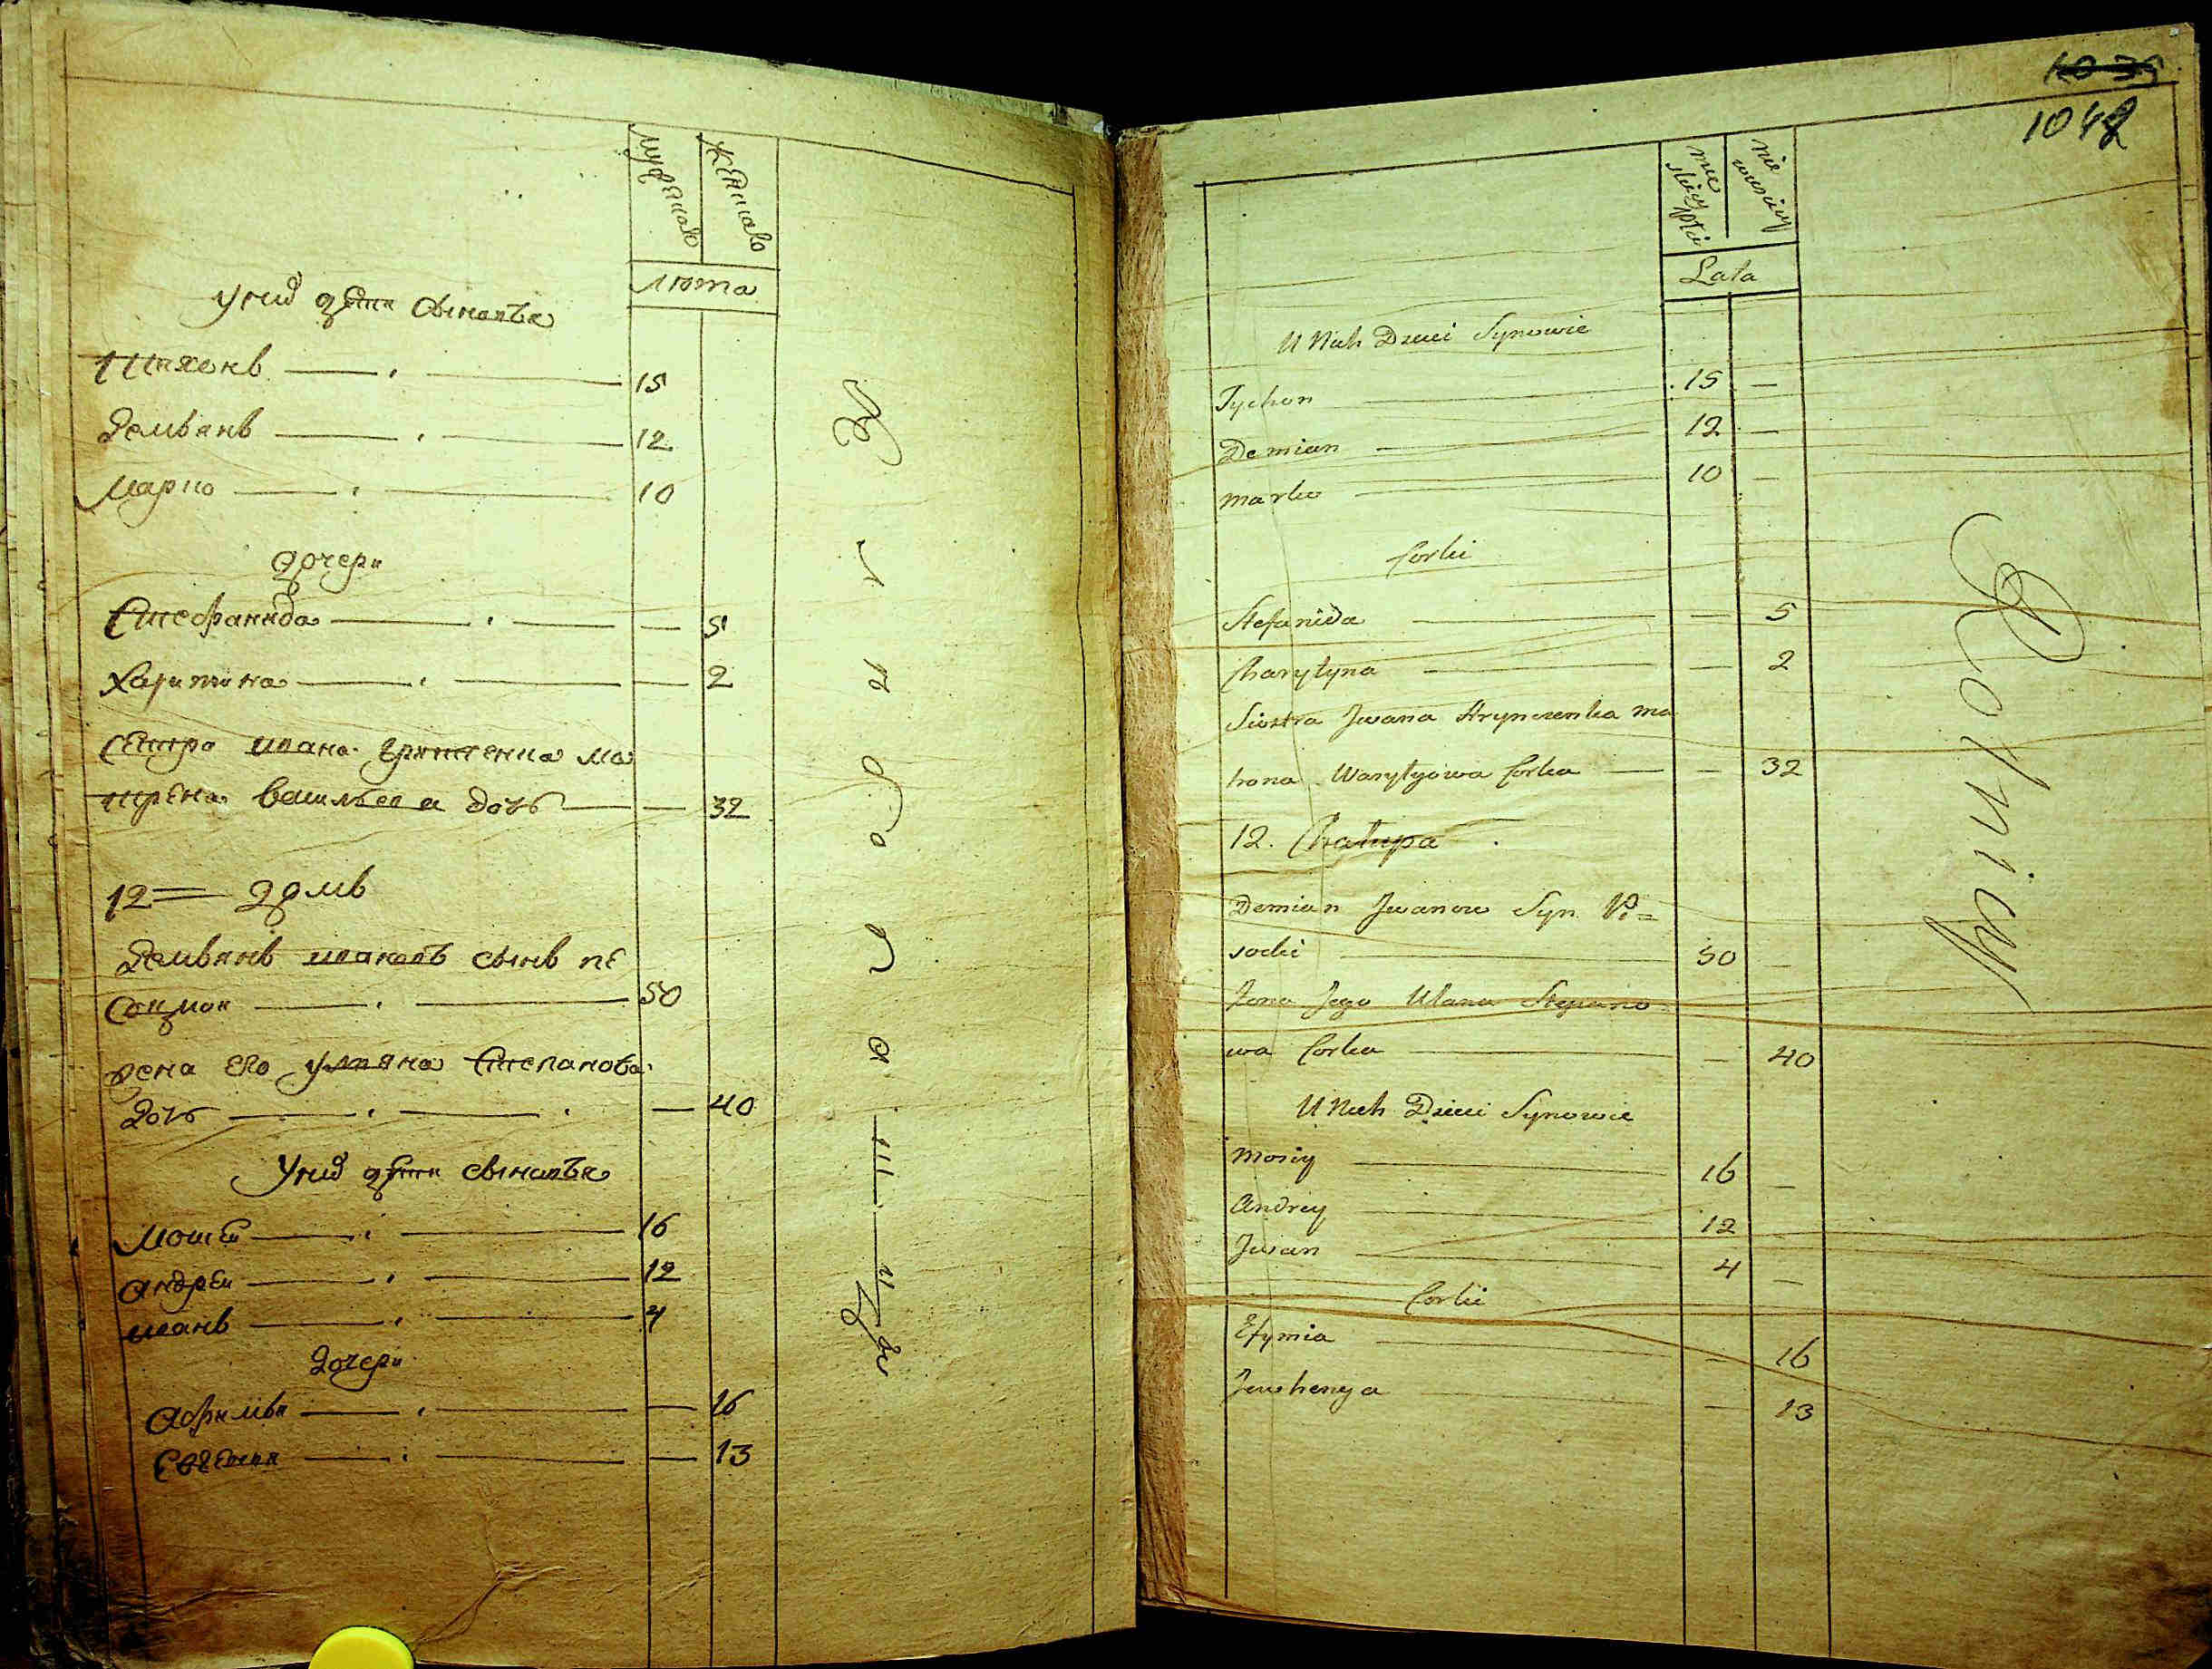 мужеска
женска
лѣта
У них дети сыновья
Тихонъ 15
Демьянъ 12
Марко 10
дочери
Стефанида — 5
Харитина — 2
Сестра ивана грищенка ма
трена васильева дочь — 32
12 домъ
Демьянъ ивановъ сынъ пе
соцкой 50
жена его ульяна Степанова
дочь — 40
У них дети сыновья
Мосей 16
андрей 12
иванъ 4
дочери
Афимья — 16
Евгения — 13
1042
męskiey płci
niewieściey
Lata
U Nich Dzieci Synowie
Tychon 15 —
Demian 12 —
Marko 10 —
Corki
Stefanida — 5
Charytyna — 2
Siostra Jwana Hrynczenka Ma
trona Wasylyowa Corka — 32
12. Chałupa
Demian Jwanow Syn Pi=
socki 50 —
Żona Jego Ulana Stepano
wa Corka — 40
U Nich Dzieci Synowie
Mosiy 16 —
Andrey 12
Jwan 4 —
Corki
Efymia — 16
Jewhenya — 13
Rolnicy